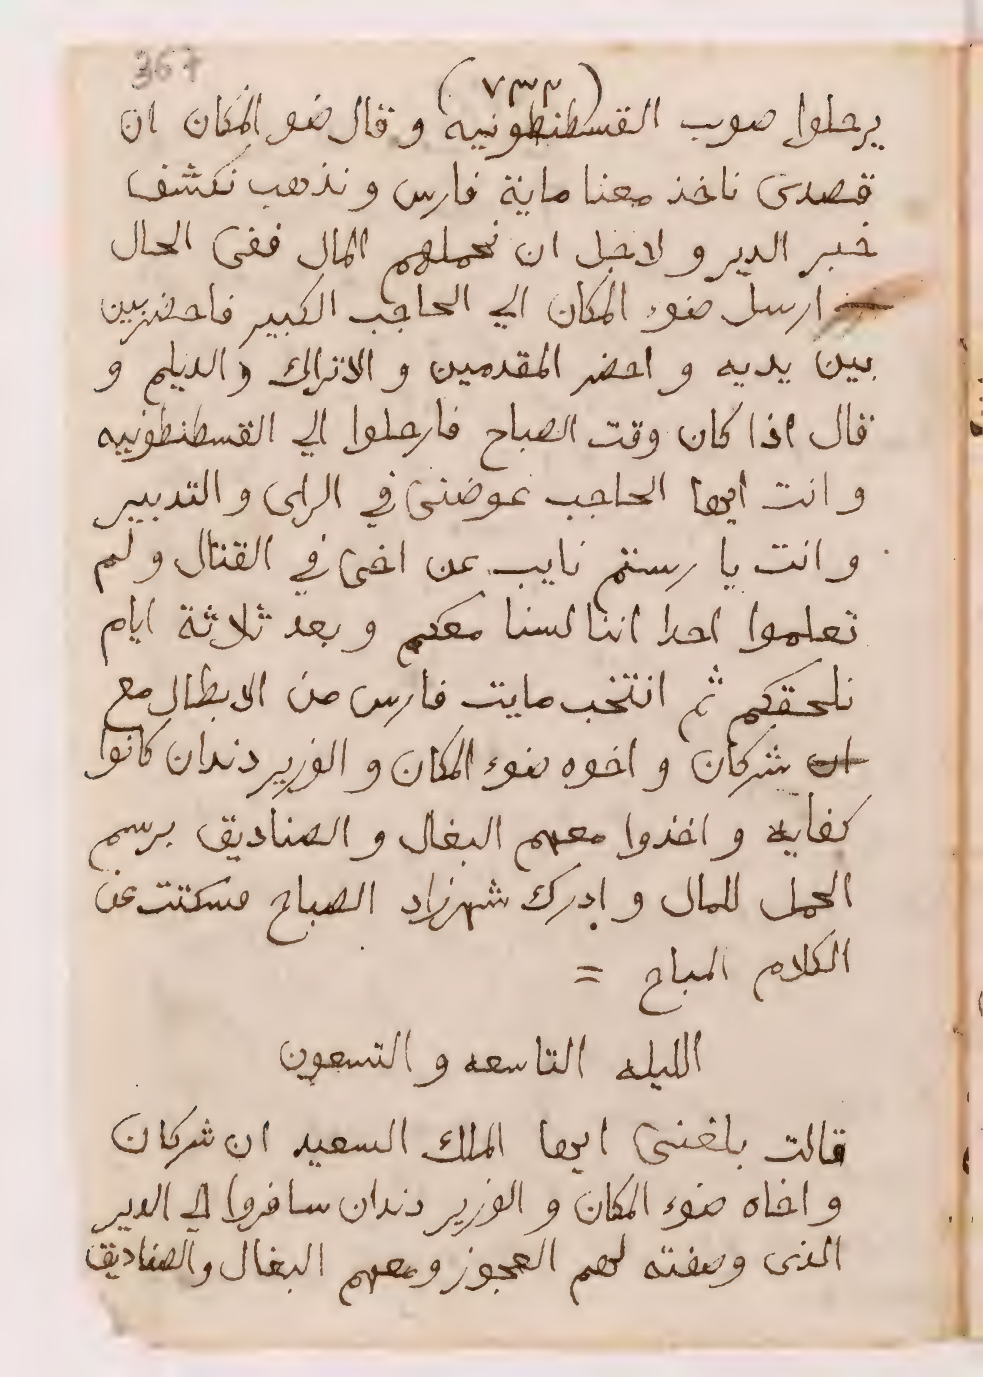 367
(٧٣٣)
يرحلوا صوب القسطنطونيه و قال ضو المكان ان
قصدى ناخذ معنا ماية فارس و نذهب نكشف
خبر الدير و لاجل ان نحملهم المال ففى الحال
ارسل ضوء المكان الي الحاجب الكبير فاحضر بين
بين يديه و احضر المقدمين و الاتراك و الديلم و
قال اذا كان وقت الصباح فارحلوا الي القسطنطونيه
و انت ايها الحاجب عوضنى في الراى و التدبير
و انت يا رستم نايب عن اخى في القتال و لم
تعلموا احدا اننا لسنا معكم و بعد ثلاثة ايام
نلحقكم ثم انتخب مايت فارس من الابطال مع
ان شركان و اخوه ضوء المكان و الوزير دندان كانوا
كفايه و اخذوا معهم البغال و الصناديق برسم
الحمل للمال و ادرك شهرزاد الصباح فسكتت عن
الكلام المباح =
الليله التاسعه و التسعون
قالت بلغنى ايها الملك السعيد ان شركان
و اخاه ضوء المكان و الوزير دندان سافروا الي الدير
الذى وصفته لهم العجوز و معهم البغال و الصناديق